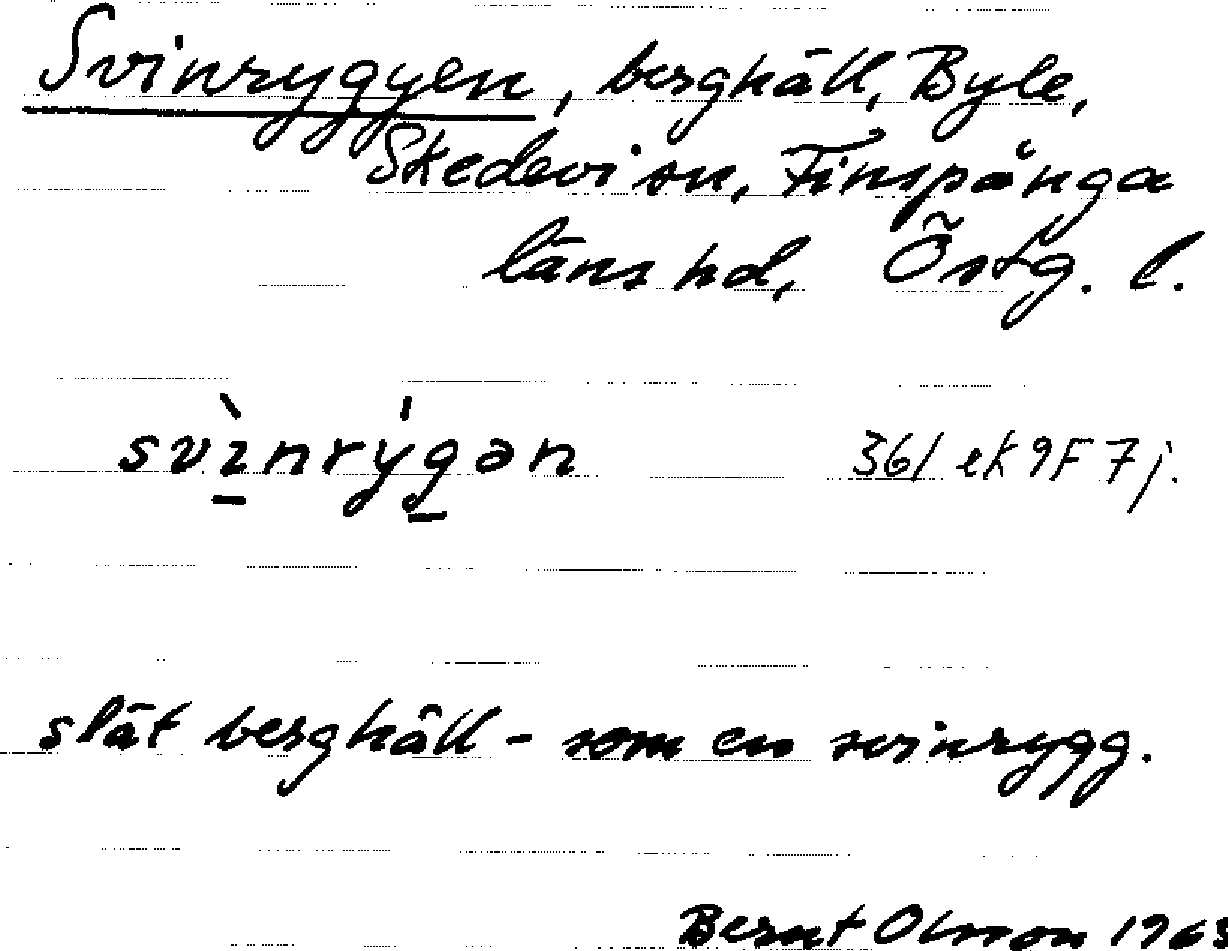 Svinryggen, berghäll, Byle,
Skedevi sn, Finspånga
läns hd, Östg. l.
svìnrýgən 361 ek 9F 7j.
slät berghäll - som en svinrygg.
Bernt Olsson 1963